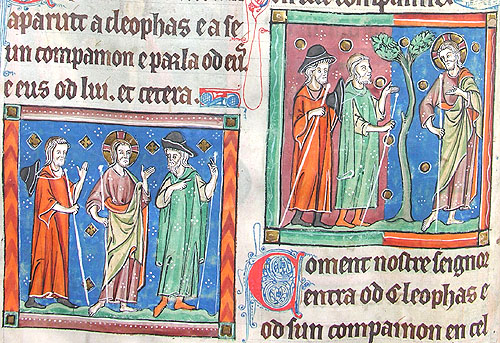 aparut a cleophas e a se
un compainon e parla od eus
e eus od lui. et cetera.
Coment nostre seignor
entra od Cleophas e
od sun compainon en cel